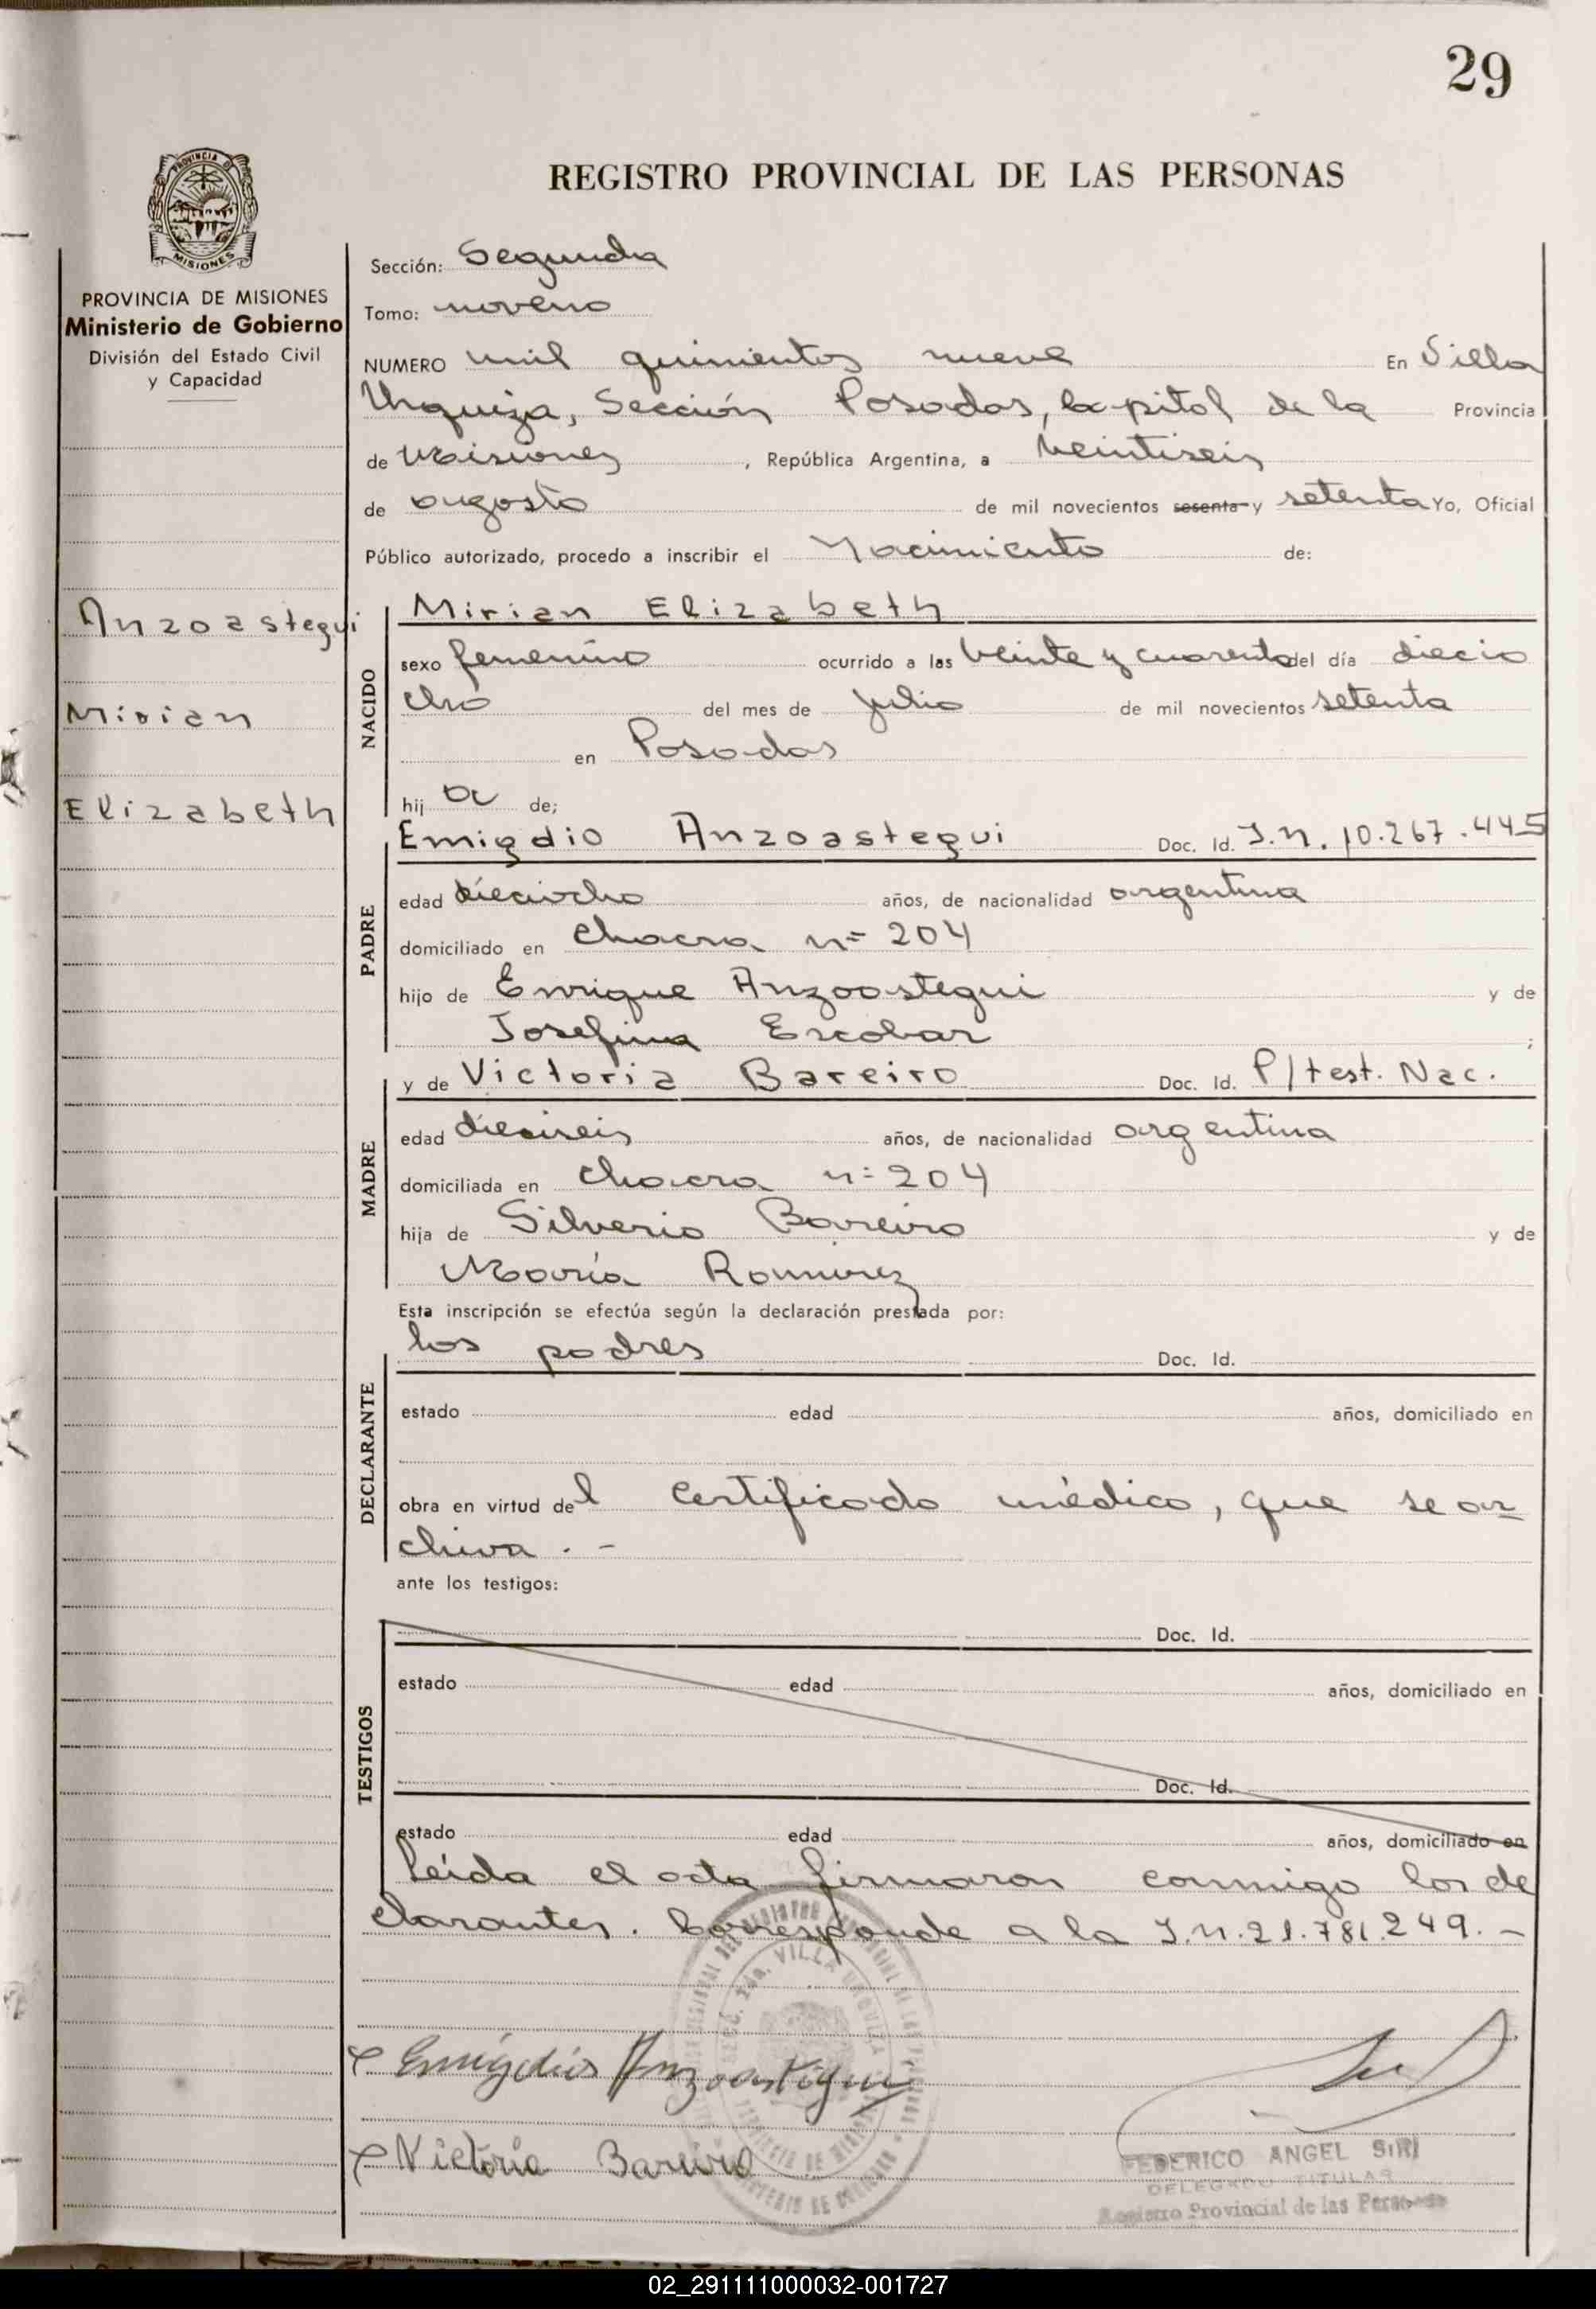 29
REGISTRO PROVINCIAL DE LAS PERSONAS
PROVINCIA DE MISIONES
Ministerio de Gobierno
División del Estado Civil
y Capacidad
Anzoastegui
Mirian
Elizabeth
Sección: Segunda
Tomo: noveno
NUMERO mil quinientos nueve En Villa
Urquiza, Sección Posadas, Capital de la Provincia
de Misiones, República Argentina, a veintiseis
de augosto de mil novecientos sesenta y setenta Yo, Oficial
Público autorizado, procedo a inscribir el Nacimiento de:
NACIDO
Mirian Elizabeth
sexo femenino ocurrido a las veinte y cuarenta del día diecio
cho del mes de julio de mil novecientos setenta
en Posadas
hij a de;
PADRE
Emigdio Anzoastegui Doc. Id. I.N. 10.267.445
edad dieciocho años, de nacionalidad argentina
domiciliado en chacra n= 204
hijo de Enrique Anzoastegui y de
Josefina Escobar ;
MADRE
y de Victoria Bareiro Doc. Id. P/test. Nac.
edad dieciseis años, de nacionalidad argentina
domiciliada en chacra n= 204
hija de Silverio Bareiro y de
María Ramirez
Esta inscripción se efectúa según la declaración prestada por:
DECLARANTE
los padres Doc. Id.
estado edad años, domiciliado en
obra en virtud del certificado médico, que se ar
chiva. -
ante los testigos:
TESTIGOS
Doc. Id.
estado edad años, domiciliado en
Doc. Id.
estado edad años, domiciliado en
Leída el acta firmaron conmigo los de
clarantes. Corresponde a la I.N. 21.781.249. -
Emigdio Anzoastigui
Victoria Bareiro
FEDERICO ANGEL SIRI
DELEGADO TITULAR
Registro Provincial de las Personas
02_291111000032-001727